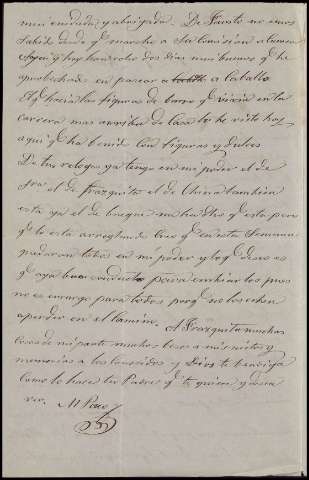 muy cuidada y abrigada. De Fausto no emos
sabido desde q.e marcho a su comision a
y hoy han sido dos dias muy buenos q.e he
aprobechado en pasear a a Caballo
El q.e hacia las figuras de barro q.e vivia en la
carrera mas arriba de Casa lo he visto hoy
aqui q.e ha benido con figuras y dulces
De tus reloges ya tengo en mi poder el de
el de Frazquita el de China tambien
esta ya el de q.e esta
q.e lo esta arreglando creo q.e en esta Semana
todos en mi poder y lo q.e deseo es
q.e aya buen conducto para embiar los pues
no es encargo para todos porq.e no los echen
aperder en el Camino. A Frazquita muchas
cosas de mi parte muchos besos a mis nietos y
memorias a los conocidos y Dios te bendiga
como lo hace tu Padre q.e te quiere y desea
ver. M Paco